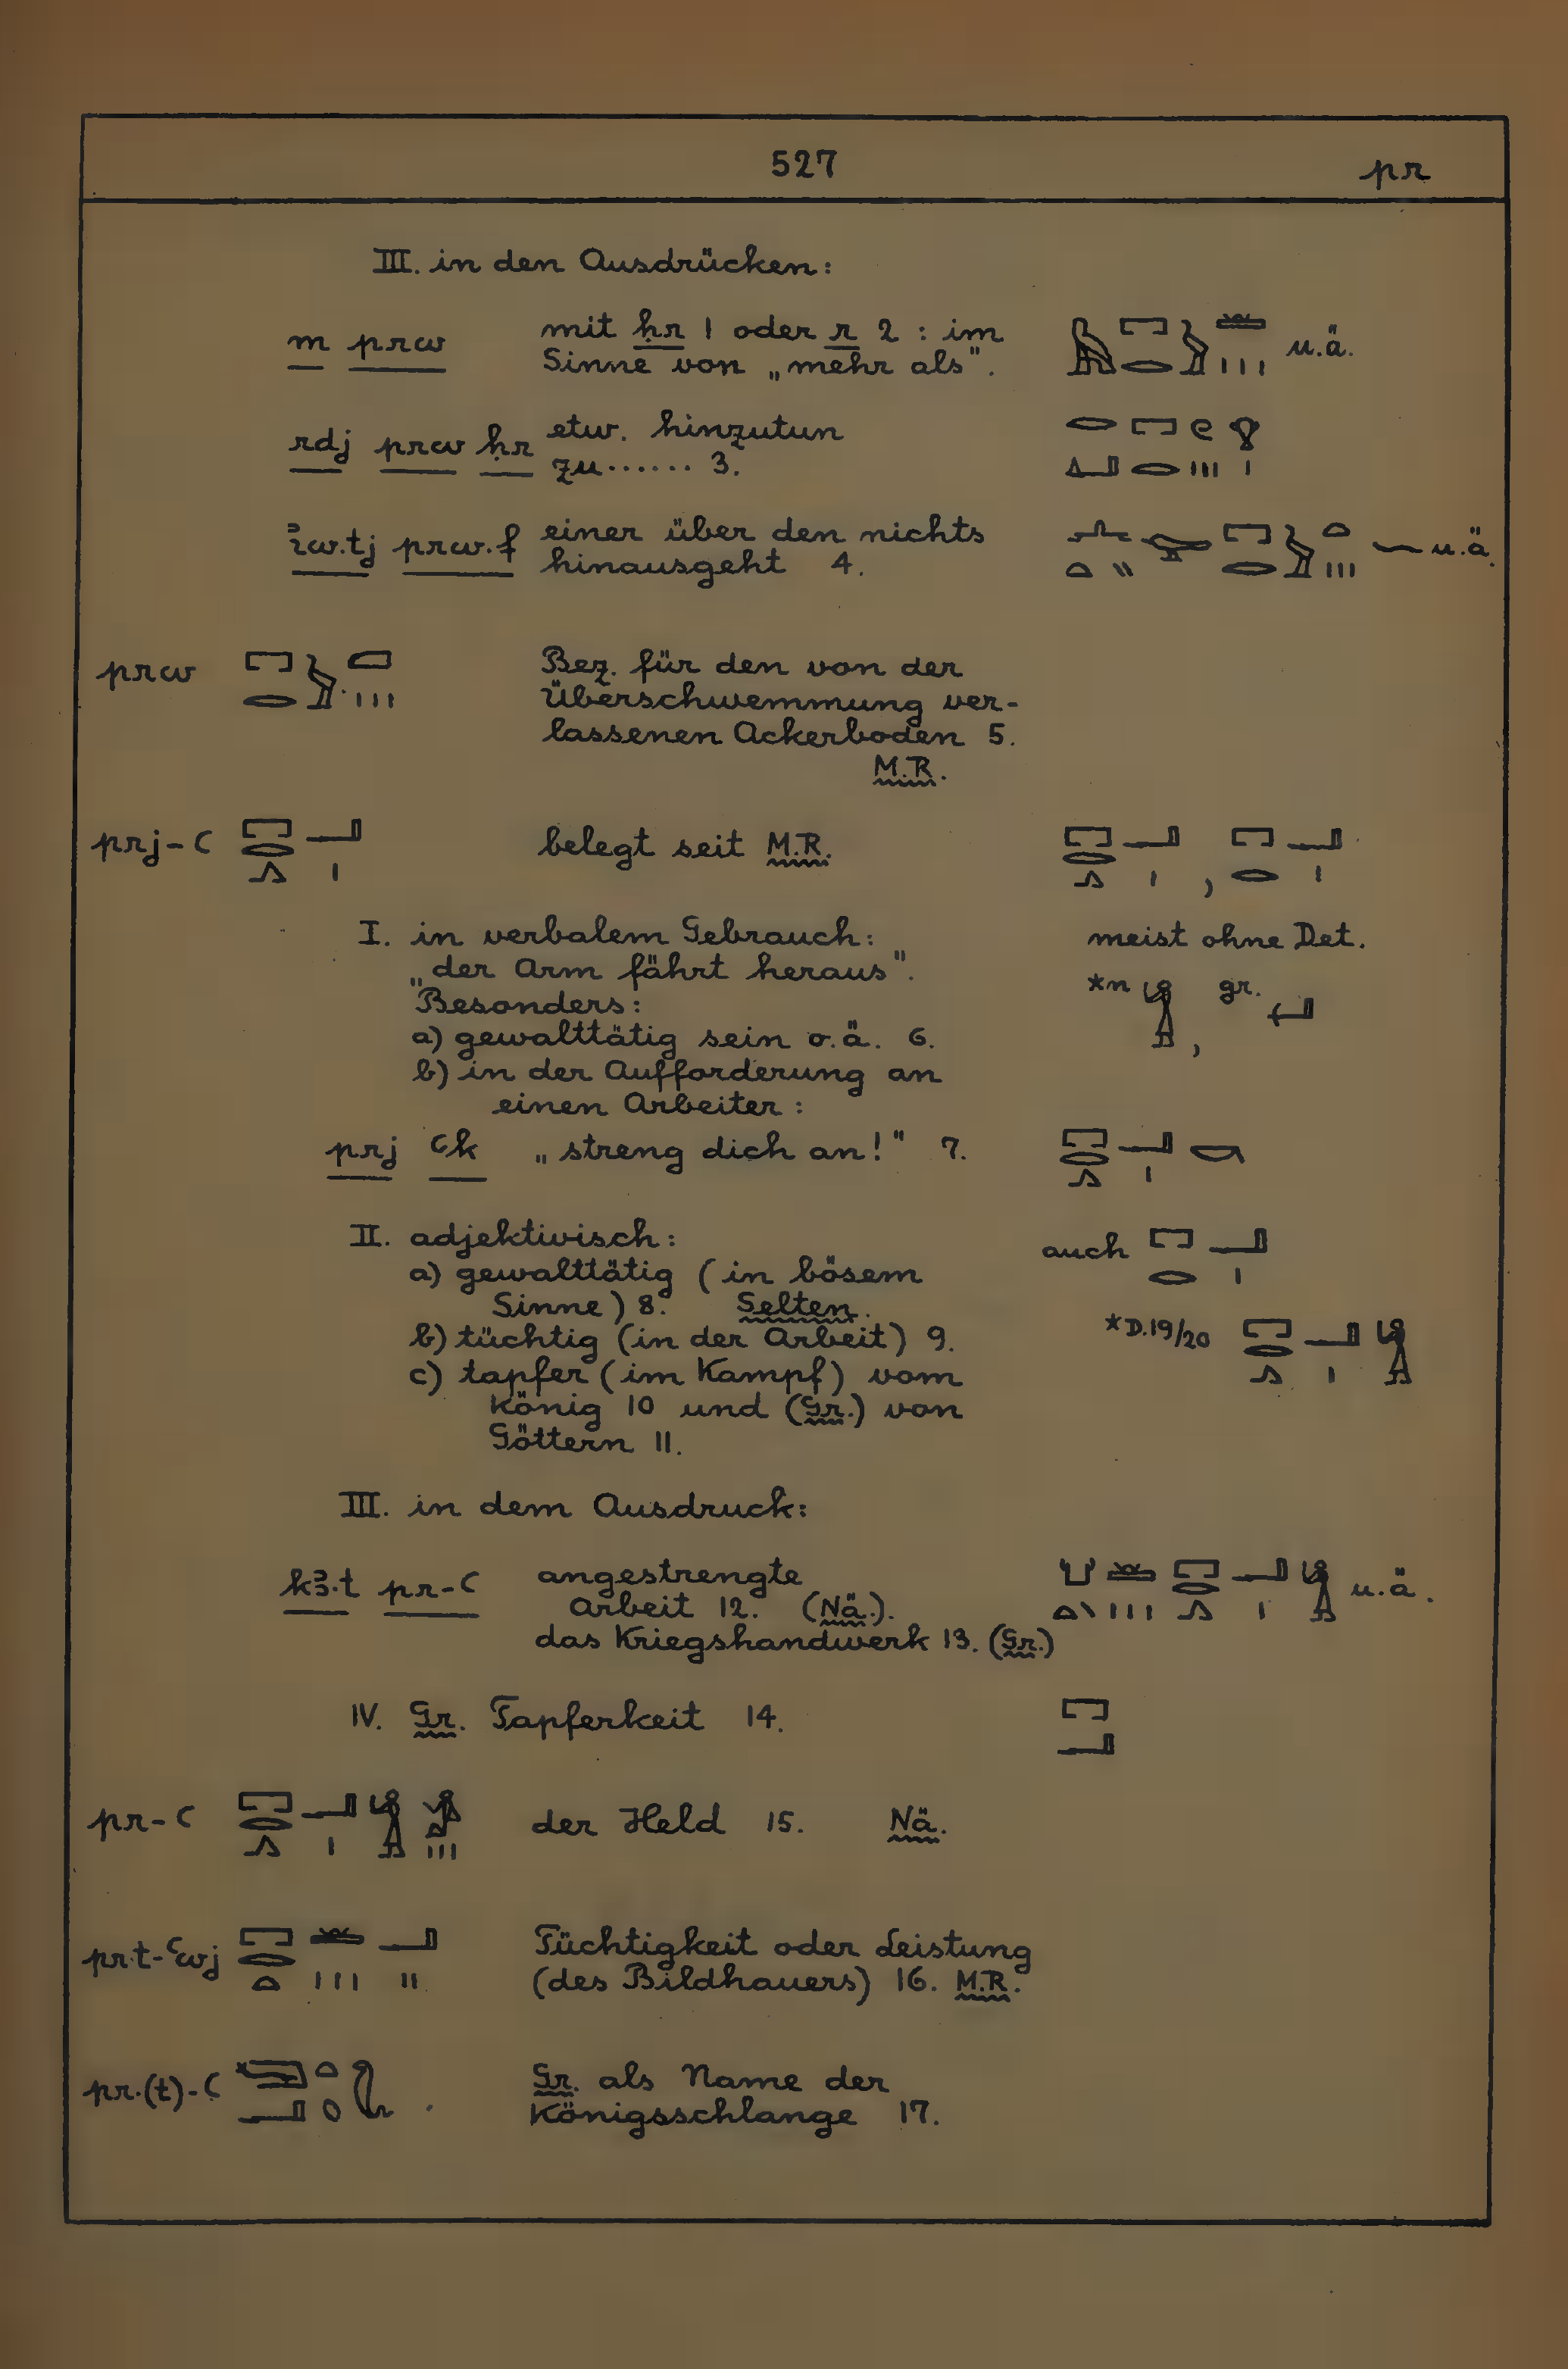 527
pr
III. in den Ausdrücken:
m prw mit ḥr 1 oder r 2 : im
Sinne von „mehr als". u.ä.
rdj prw ḥr etw. hinzutun
zu ...... 3.
iw.tj prw.f einer über den nichts
hinausgeht 4. u.ä.
prw Bez. für den von der
Überschwemmung ver-
lassenen Ackerboden 5.
M.R.
prj-ʿ belegt seit M.R. ,
I. in verbalem Gebrauch: meist ohne Det.
„der Arm fährt heraus".
Besonders: *n , gr.
a) gewalttätig sein o.ä. 6.
b) in der Aufforderung an
einen Arbeiter :
prj ʿk „streng dich an!" 7.
II. adjektivisch: auch
a) gewalttätig (in bösem
Sinne) 8. Selten.
b) tüchtig (in der Arbeit) 9. *D.19/20
c) tapfer (im Kampf) vom
König 10 und (Gr.) von
Göttern 11.
III. in dem Ausdruck:
kꜣ.t pr-ʿ angestrengte
Arbeit 12. (Nä.). u.ä.
das Kriegshandwerk 13. (Gr.)
IV. Gr. Tapferkeit 14.
pr-ʿ der Held 15. Nä.
pr.t-ʿwj Tüchtigkeit oder Leistung
(des Bildhauers) 16. M.R.
pr.(t)-ʿ Gr. als Name der
Königsschlange 17.